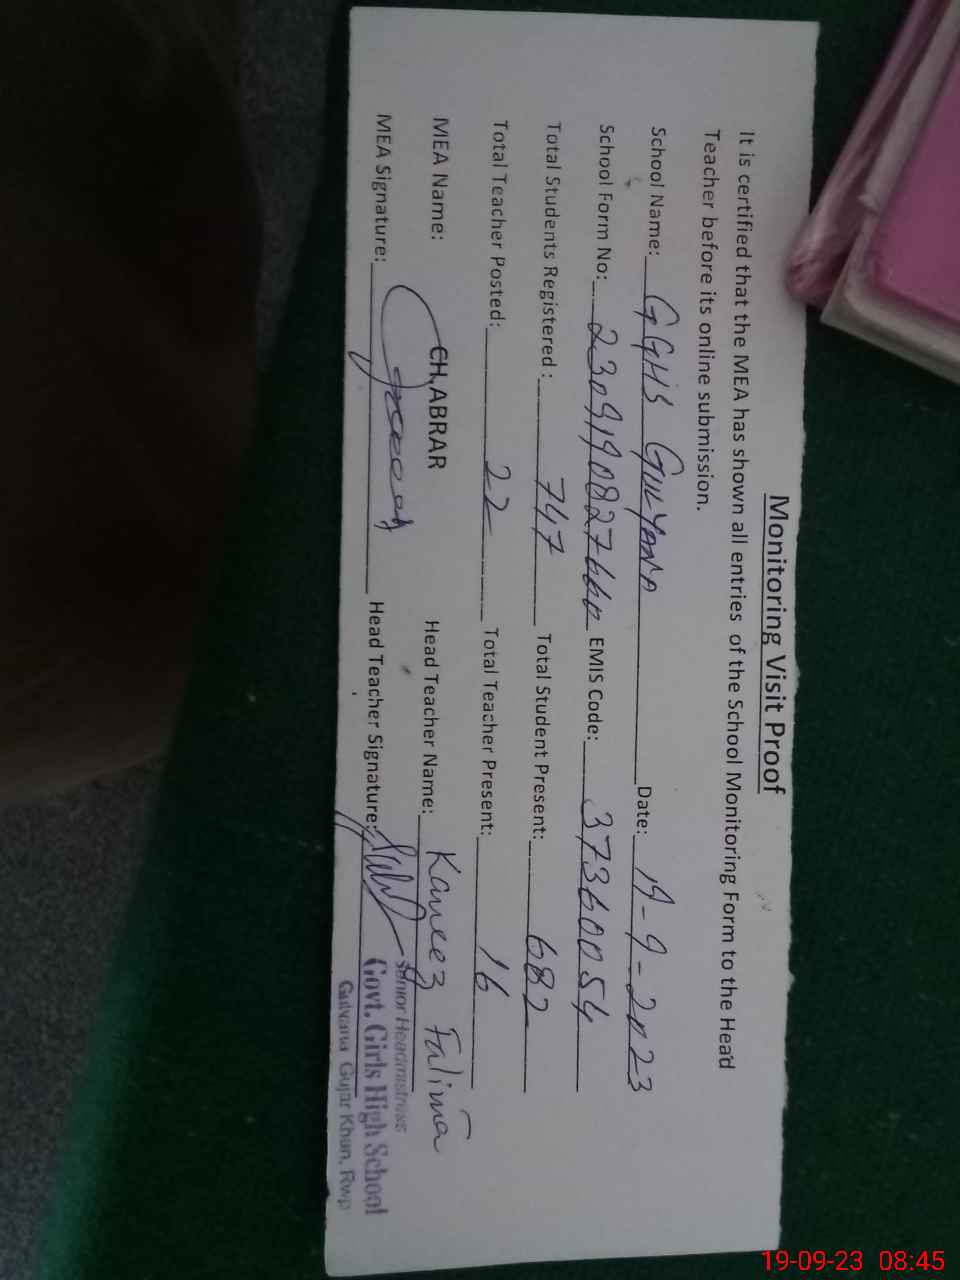 Monitoring Visit Proof
It is certified that the MEA has shown all entries of the School Monitoring Form to the Head
Teacher before its online submission.
School Name: GGHS GULYANA Date: 19-9-2023
School Form No: EMIS Code: 37360054
Total Students Registered : 747 Total Student Present: 682
Total Teacher Posted: 22 Total Teacher Present: 16
MEA Name: CH.ABRAR Head Teacher Name: Kaneez Fatima
MEA Signature: Head Teacher Signature:
Senior Headmistress
Govt. Girls High School
Gulyana Gujar Khan, Rwp
19-09-23 08:45